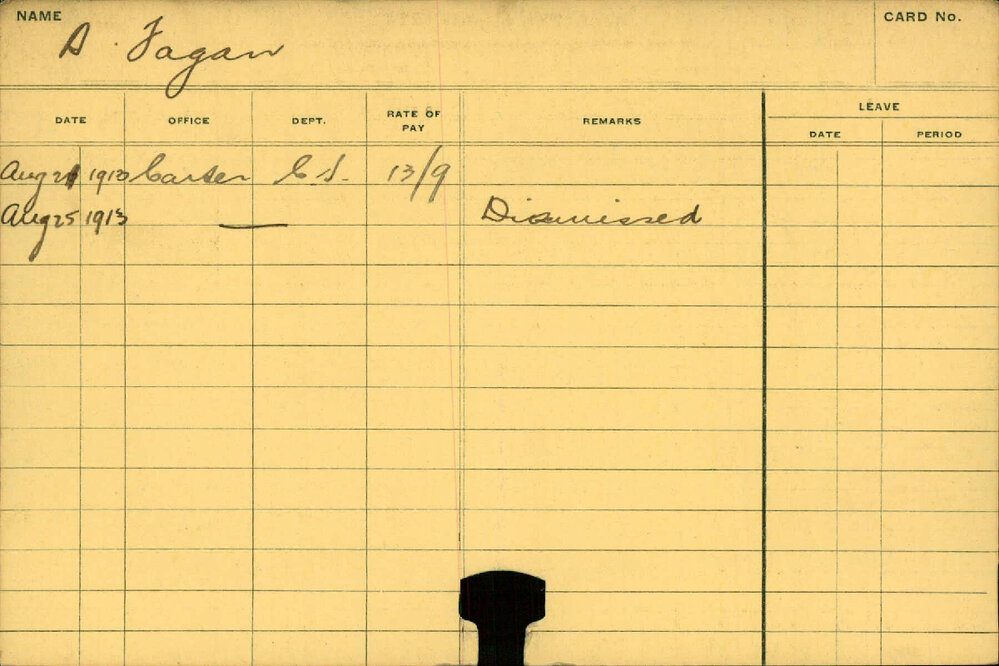 NAME
D. Fagan
CARD No.
DATE OFFICE DEPT. RATE OF PAY REMARKS LEAVE
DATE PERIOD
Aug 21 1913 Carter C.S. 13/9
Aug 25 1913 — Dismissed